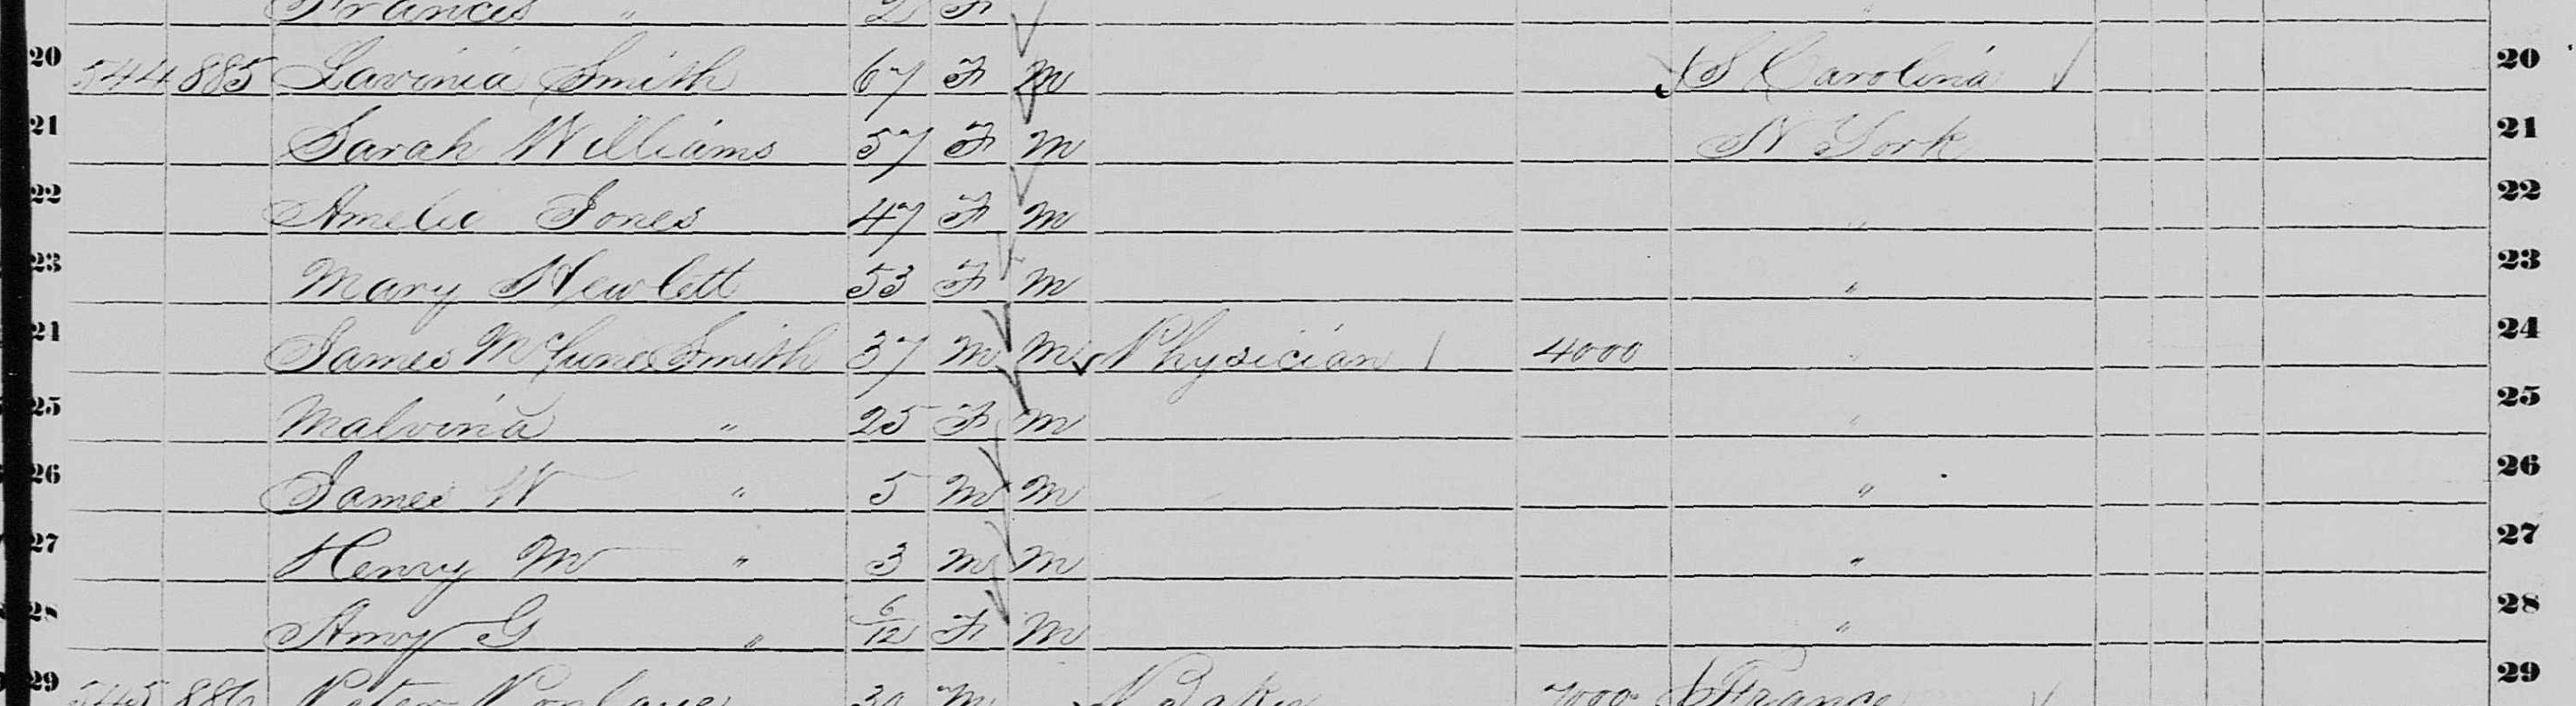 Frances " 2 F "
20 544 885 Lavinia Smith 67 F M S Carolina 20
21 Sarah Williams 57 F M N York 21
22 Amelia Jones 47 F M " 22
23 Mary Hewlett 53 F M " 23
24 James McCune Smith 37 M M Physician 4000 " 24
25 Malvina " 25 F M " 25
26 James W " 5 M M " 26
27 Henry M " 3 M M " 27
28 Amy G " 6/12 F M " 28
29 545 886 Peter 30 M Baker 7000 France 29